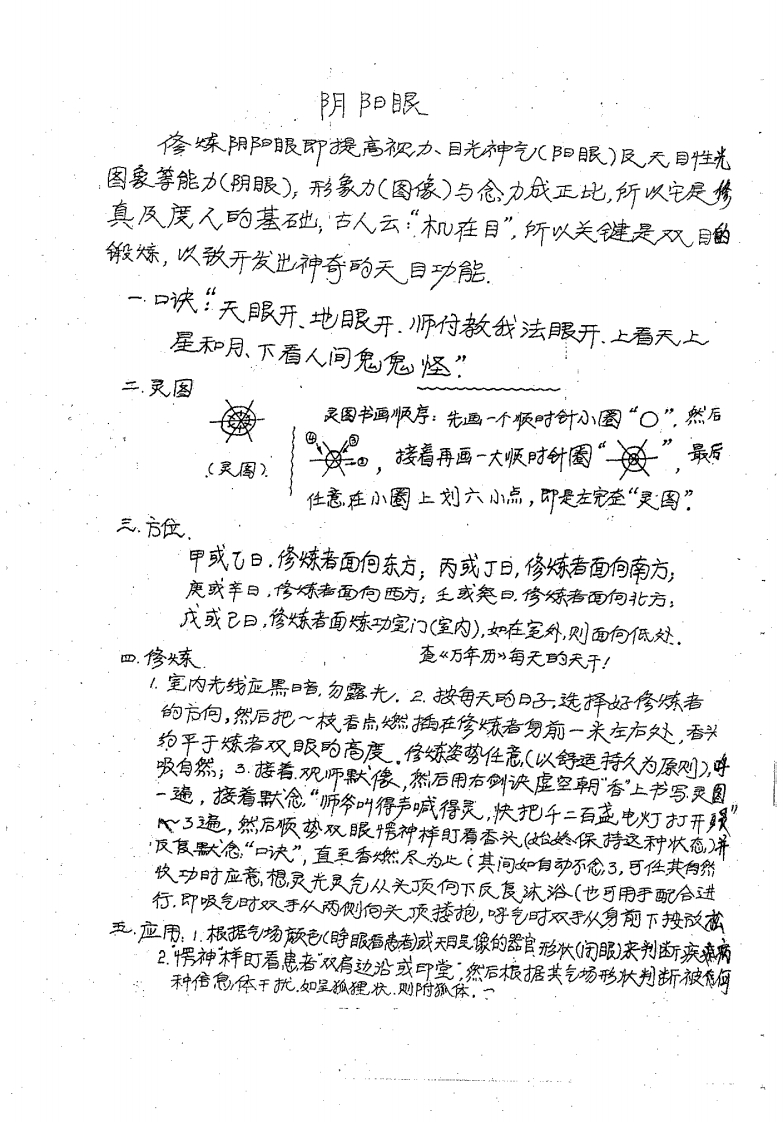 阴阳眼
修炼阴阳眼即提高视力、目光神气(阳眼)及天目性光
图象等能力(阴眼),形象力(图像)与念力成正比,所以它是修
真及度人的基础,古人云:“机在目”,所以关键是双目的
锻炼,以致开发出神奇的天目功能.
一.口诀:“天眼开、地眼开.师付教我法眼开、上看天上
星和月、下看人间鬼鬼怪”
二.灵图
灵图书画顺序:先画一个顺时针小圈“○”.然后
④ ③
②=① ,接着再画一大顺时针圈“ ”,最后
(灵图)
任意在小圈上划六小点,即是左完整“灵图”.
三.方位.
甲或乙日.修炼者面向东方;丙或丁日,修炼者面向南方;
庚或辛日,修炼者面向西方;壬或癸日.修炼者面向北方;
戊或己日,修炼者面炼功室门(室内),如在室外,则面向低处.
四.修炼 查《万年历》每天的天干!
1.室内光线应黑暗.勿露光. 2.按每天的日子,选择好修炼者
的方向,然后把一枝香点燃插在修炼者身前一米左右处,香头
约平于炼者双眼的高度.修炼姿势任意(以舒适持久为原则),呼
吸自然;3.接着.观师默像,然后用右剑诀虚空朝“香”上书写灵图
一遍,接着默念“师爷叫得声喊得灵,快把千二百盏电灯打开
~3遍,然后顺势双眼愣神样盯看香头(始终保持这种状态)并
反复默念“口诀”,直至香燃尽为止(其间如自动不念3,可任其自然
收功时应意想灵光灵气从头顶向下反复沐浴(也可用手配合进
行.即吸气时双手从两侧向头顶搂抱,呼气时双手从身前下按放松
五.应用:1.根据气场颜色(睁眼看患者)或天目呈像的器官形状(闭眼)来判断疾病
2.愣神样盯看患者“双肩边沿或印堂”,然后根据其气场形状判断被何
种信息体干扰.如呈狐狸状.则附狐体.